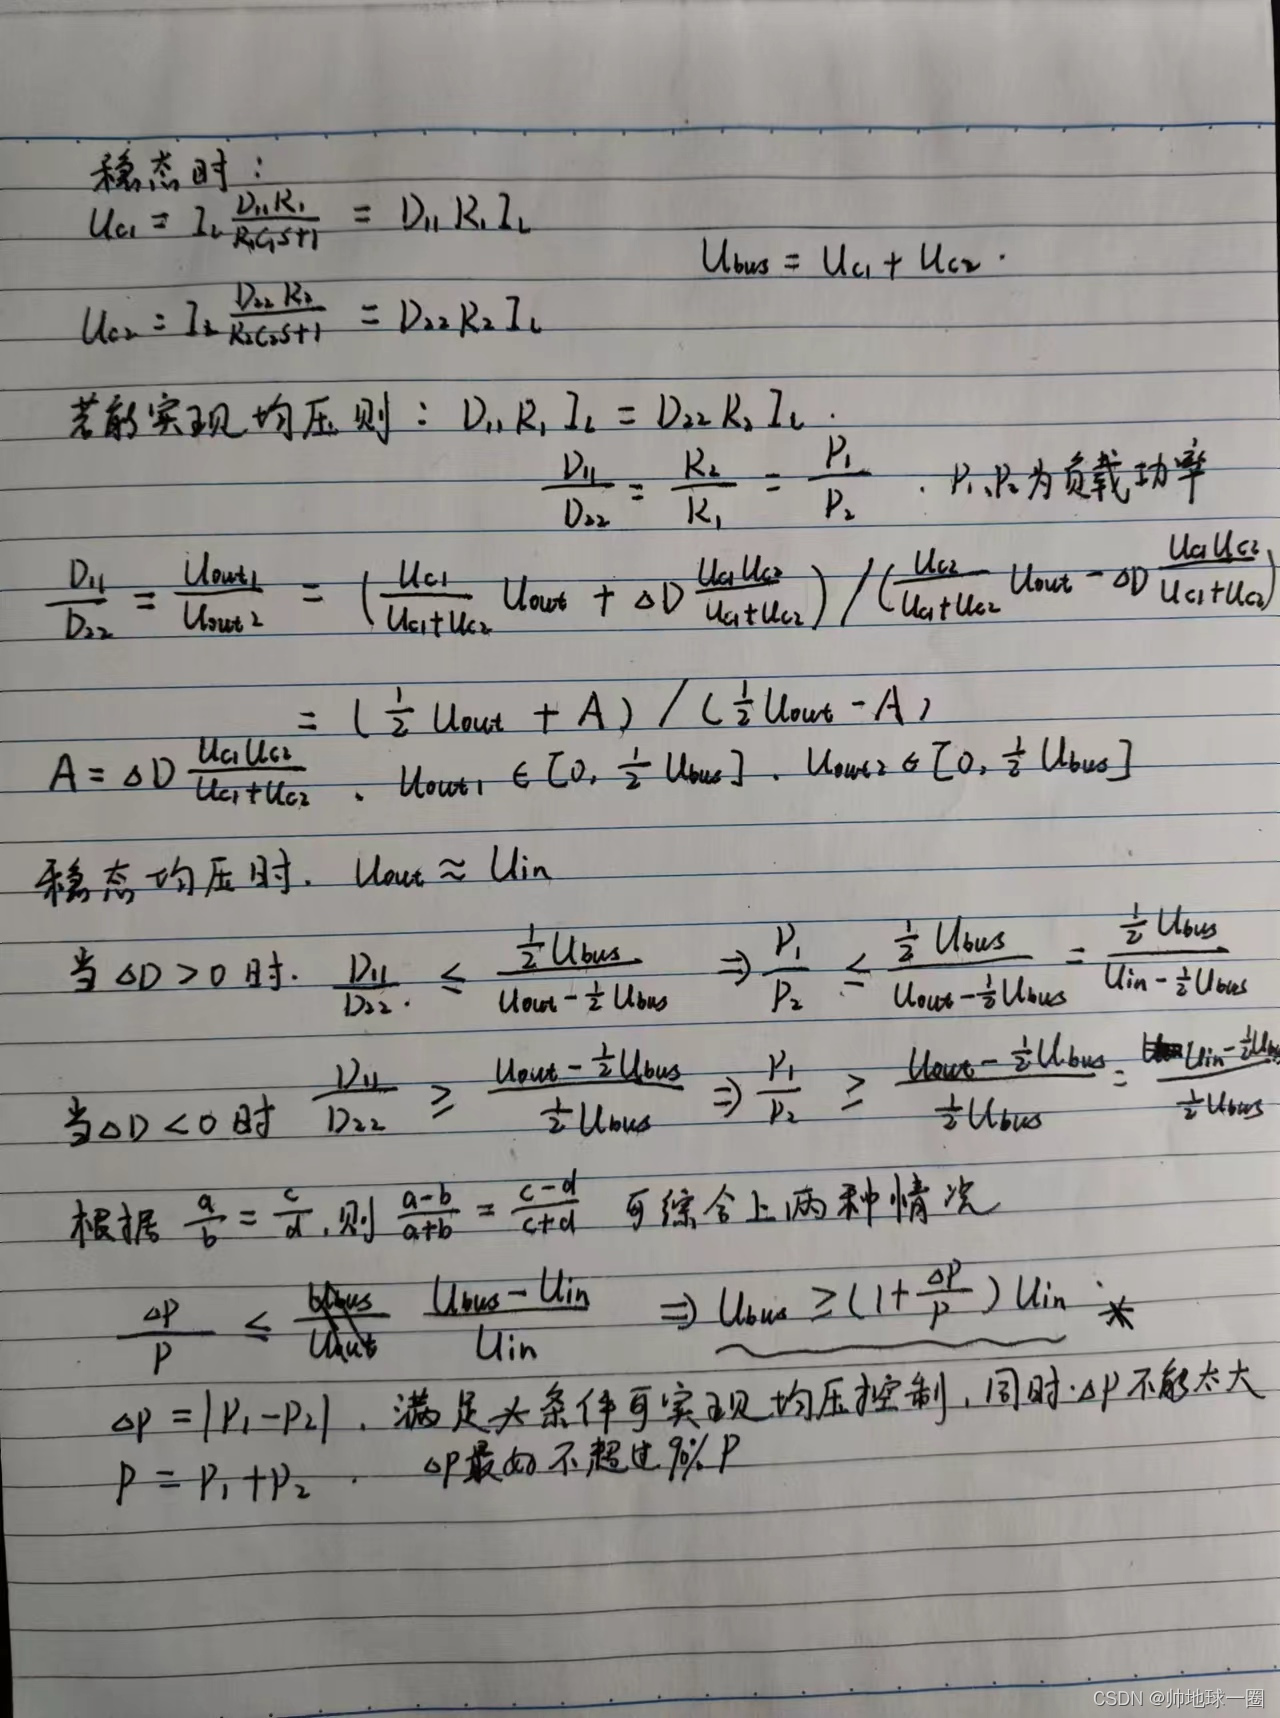 稳态时：
Uc1 = IL D11R1/(R1C1S+1) = D11R1IL
Ubus = Uc1 + Uc2 .
Uc2 = IL D22R2/(R2C2S+1) = D22R2IL
若能实现均压则：D11R1IL = D22R2IL .
D11/D22 = R2/R1 = P1/P2 . P1、P2为负载功率
D11/D22 = Uout1/Uout2 = (Uc1/(Uc1+Uc2) Uout + ΔD Uc1Uc2/(Uc1+Uc2)) / (Uc2/(Uc1+Uc2) Uout - ΔD Uc1Uc2/(Uc1+Uc2))
= (1/2 Uout + A) / (1/2 Uout - A)
A = ΔD Uc1Uc2/(Uc1+Uc2) . Uout1 ∈ [0, 1/2 Ubus] . Uout2 ∈ [0, 1/2 Ubus]
稳态均压时. Uout ≈ Uin
当ΔD>0时. D11/D22 ≤ 1/2 Ubus/(Uout - 1/2 Ubus) ⇒ P1/P2 ≤ 1/2 Ubus/(Uout - 1/2 Ubus) = 1/2 Ubus/(Uin - 1/2 Ubus)
当ΔD<0时 D11/D22 ≥ (Uout - 1/2 Ubus)/(1/2 Ubus) ⇒ P1/P2 ≥ (Uout - 1/2 Ubus)/(1/2 Ubus) = (Uin - 1/2 Ubus)/(1/2 Ubus)
根据 a/b = c/d ,则 (a-b)/(a+b) = (c-d)/(c+d) 可综合上两种情况
ΔP/P ≤ (Ubus - Uin)/Uin ⇒ Ubus ≥ (1 + ΔP/P) Uin . *
ΔP = |P1-P2| . 满足*条件可实现均压控制,同时.ΔP不能太大
P = P1+P2 . ΔP最好不超过90% P
CSDN @帅地球一圈